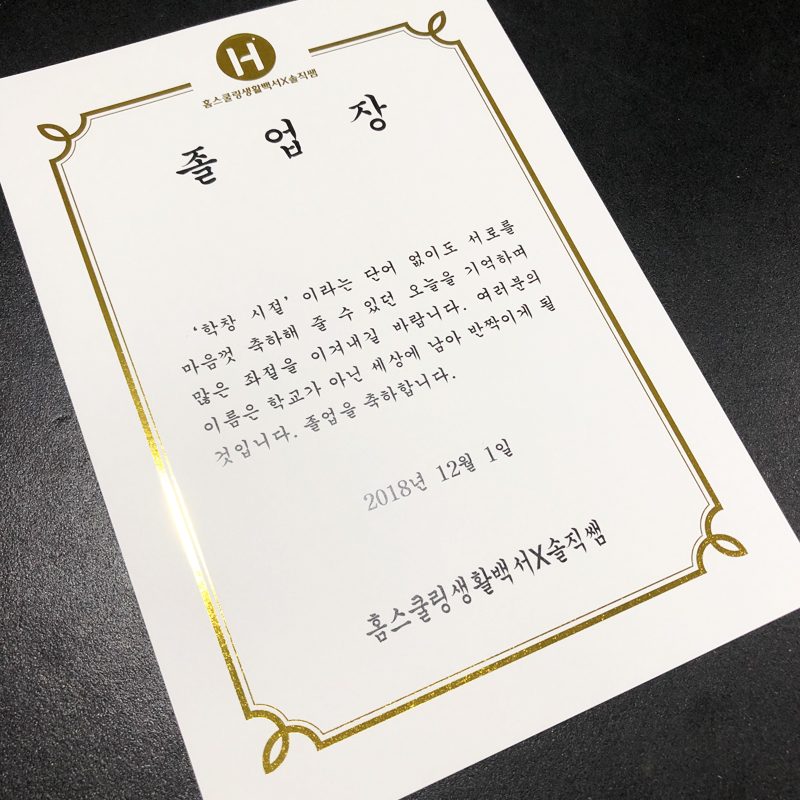 H
홈스쿨링생활백서X솔직쌤
졸업장
'학창 시절' 이라는 단어 없이도 서로를
마음껏 축하해 줄 수 있던 오늘을 기억하며
많은 좌절을 이겨내길 바랍니다. 여러분의
이름은 학교가 아닌 세상에 남아 반짝이게 될
것입니다. 졸업을 축하합니다.
2018년 12월 1일
홈스쿨링생활백서X솔직쌤